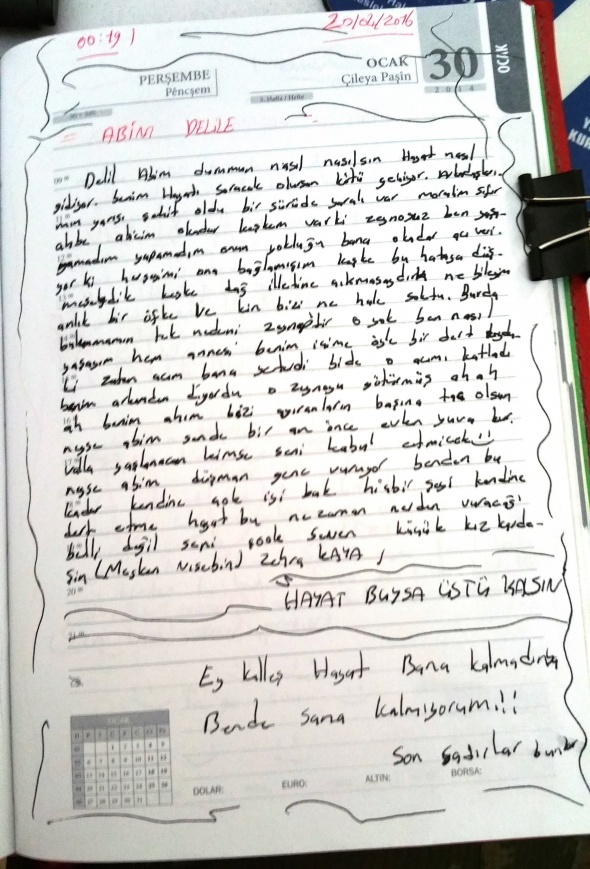 00:19
20/04/2016
PERŞEMBE
Pêncşem
OCAK
Çileya Paşin
30
2014
OCAK
5. Hafta / Hefte
= ABİM DELİLE
Delil Abim durumun nasıl nasılsın Hayat nasıl
gidiyor. benim Hayatı soracak olursan kötü geçiyor. Arkadaşla-
mın yarısı şehit oldu bir sürüde yaralı var moralim sıfır
ahbe abicim okadar keşkem varki zeynosuz ben yaşa-
yamadım yapamadım onun yokluğu bana okadar acı veri-
yor ki herşeyimi ona bağlamışım keşke bu hataya düş-
meseydik keşke dağ illetine çıkmasaydık ne bileyim
anlık bir öfke ve kin bizi ne hale soktu. Burda
bulunmamın tek nedeni zeyneptir o yok ben nasıl
yaşayım hem annesi benim içime öyle bir dert
ki zaten acım bana yeterdi bide o acımı katladı
benim arkamdan diyordu o zeynoyu götürmüş ah ah
ah benim ahım bizi ayıranların başına taş olsun
neyse abim sende bir an önce evlen yuva kur.
Valla yaşlanacan kimse seni kabul etmicek
neyse abim düşman gene vuruyor benden bu
kadar kendine çok iyi bak hiçbir şeyi kendine
dert etme hayat bu ne zaman nerden vuracağı
belli değil seni çook seven küçük kız karde-
şin (Meşken Nisebin) Zehra KAYA
HAYAT BUYSA ÜSTÜ KALSIN
Ey kalleş Hayat Bana kalmadınki
Bende sana kalmıyorum!!
Son satırlar bunlar
OCAK
DOLAR:
EURO:
ALTIN:
BORSA: